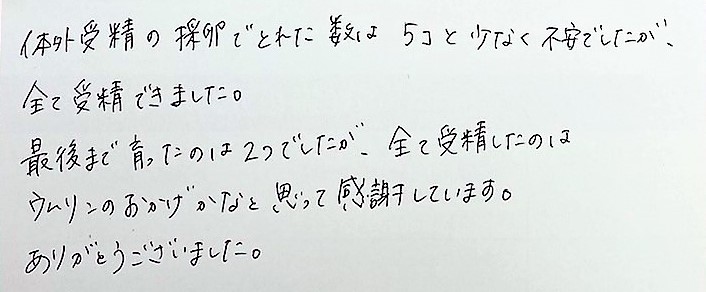 体外受精の採卵でとれた数は 5コと少なく不安でしたが、
全て受精できました。
最後まで育ったのは2つでしたが、全て受精したのは
ウムリンのおかげかなと思って感謝しています。
ありがとうございました。